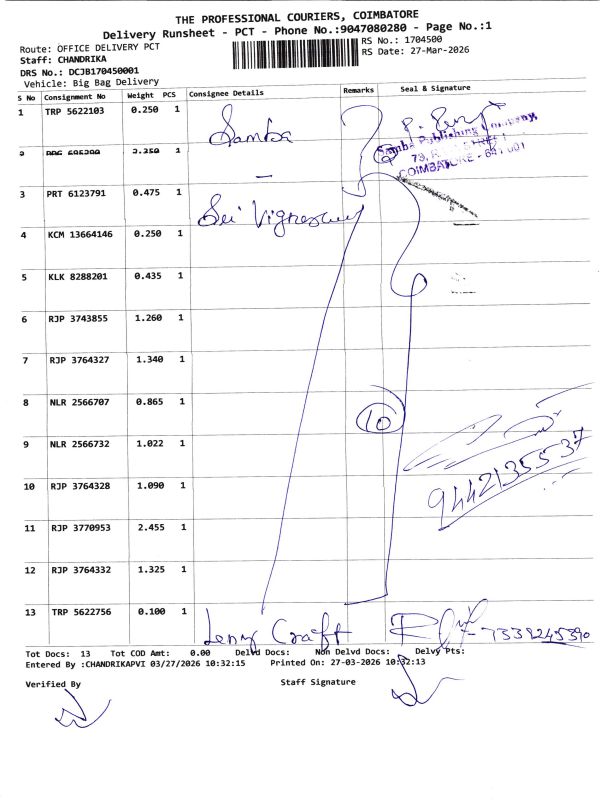 THE PROFESSIONAL COURIERS, COIMBATORE
Delivery Runsheet - PCT - Phone No.:9047080280 - Page No.:1
Route: OFFICE DELIVERY PCT
RS No.: 1704500
Staff: CHANDRIKA
RS Date: 27-Mar-2026
DRS No.: DCJB170450001
Vehicle: Big Bag Delivery
S No Consignment No Weight PCS Consignee Details Remarks Seal & Signature
1 TRP 5622103 0.250 1 Samba
Samba Publishing Company,
COIMBATORE - 641 001
3 PRT 6123791 0.475 1 Sri Vignesh
4 KCM 13664146 0.250 1
5 KLK 8288201 0.435 1
6 RJP 3743855 1.260 1
7 RJP 3764327 1.340 1
8 NLR 2566707 0.865 1
10
9 NLR 2566732 1.022 1
9442135537
10 RJP 3764328 1.090 1
11 RJP 3770953 2.455 1
12 RJP 3764332 1.325 1
13 TRP 5622756 0.100 1 Leny Craft 7339245390
Tot Docs: 13 Tot COD Amt: 0.00 Delvd Docs: Non Delvd Docs: Delvy Pts:
Entered By :CHANDRIKAPVI 03/27/2026 10:32:15 Printed On: 27-03-2026 10:32:13
Verified By Staff Signature